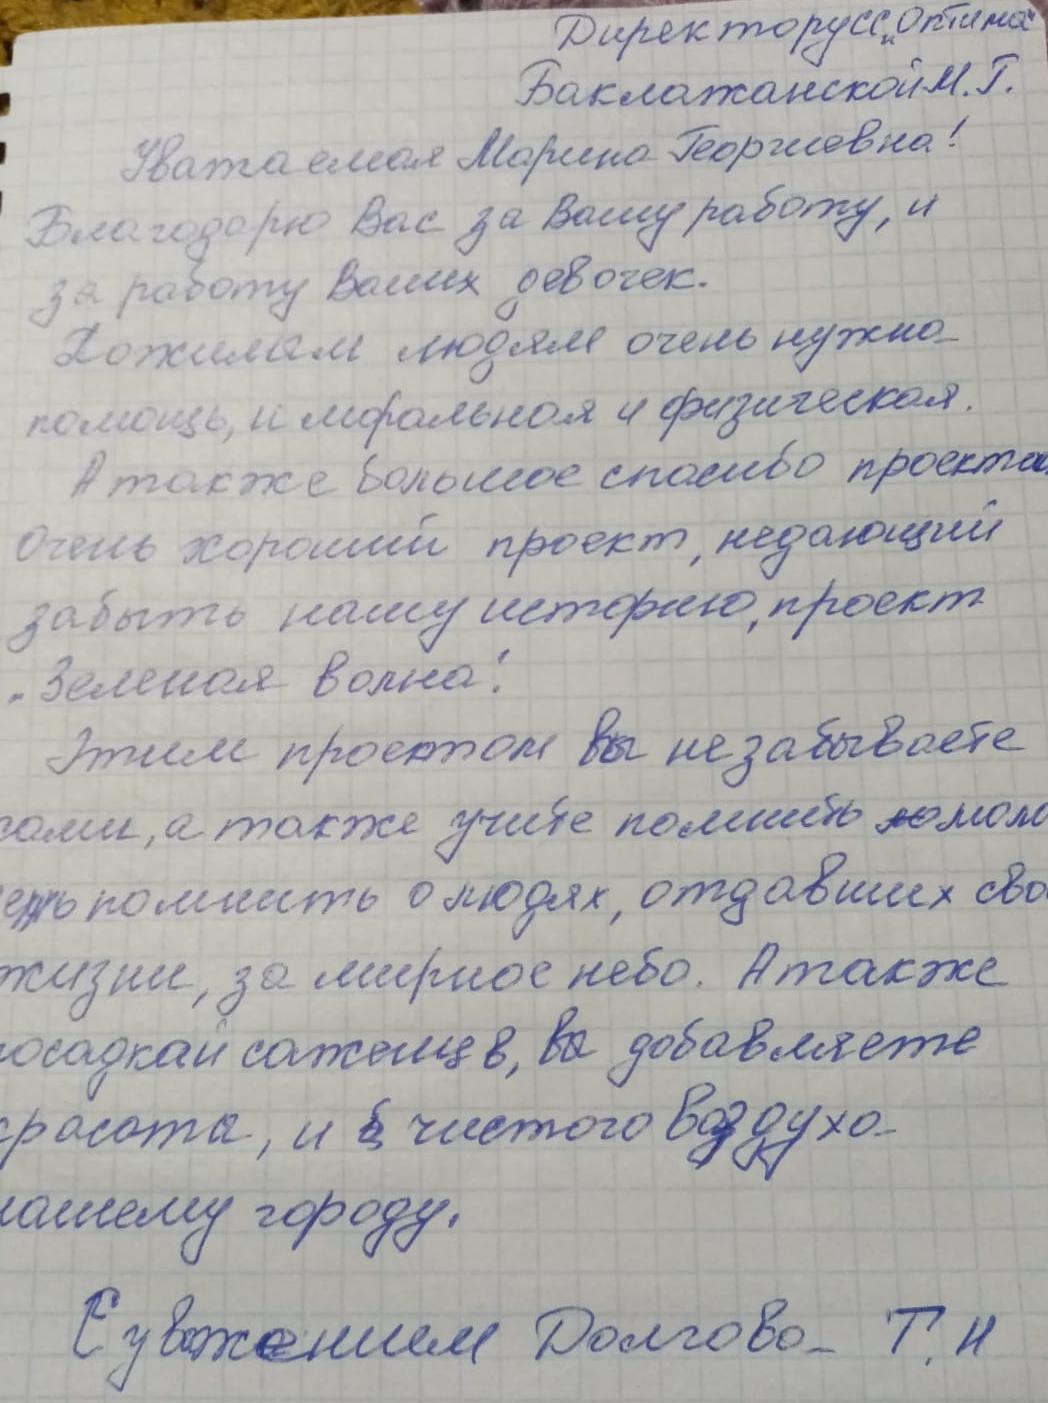 Директору СС „Оптима"
Баклажанской М. Г.
Уважаемая Марина Георгиевна!
Благодарю Вас за Вашу работу, и
за работу Ваших девочек.
Пожилым людям очень нужна
помощь, и моральная и физическая.
А также большое спасибо проекта,
Очень хороший проект, недающий
забыть нашу историю, проект
„Зеленая волна".
Этим проектом вы не забываете
сами, а также учите помнить
помнить о людях, отдавших сво
жизни, за мирное небо. А также
посадкай саженцев, вы добавляете
красота, и чистого воздуха
нашему городу.
С уважением Долгова Т. Н